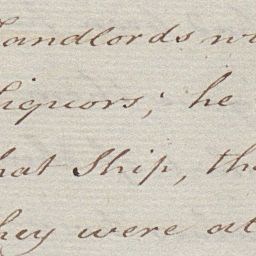 Landlords wi
Liquors; he
hat Ship, th
hey were at